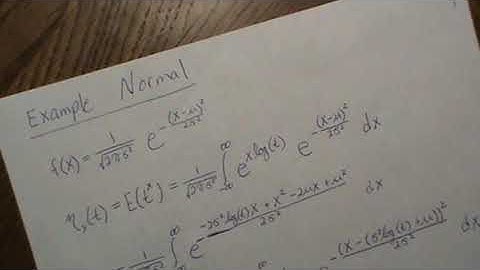 Example Normal
f(x) = 1/√(2πs²) e^(-(x-μ)²/2s²)
η_x(t) = E(t^x) = 1/√(2πs²) ∫_{-∞}^{∞} e^(x log(t)) e^(-(x-μ)²/2s²) dx
∫_{-∞}^{∞} e^((-2s² log(t)x + x² - 2μx + μ²)/2s²) dx
-(x-(s² log(t)+μ))²/2s²